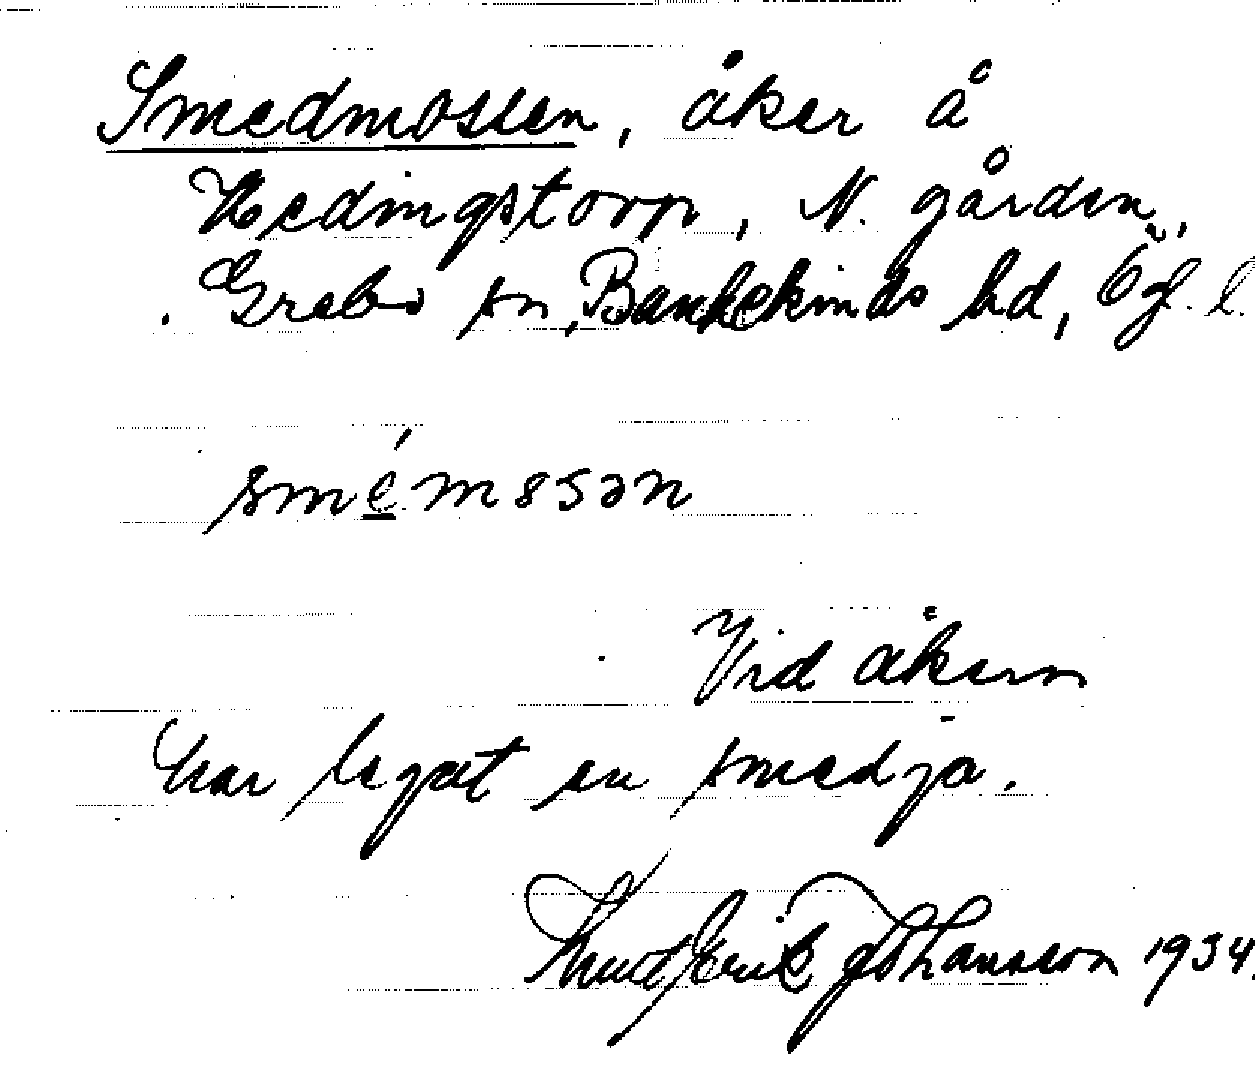 Smedmossen, åker å
Hedingstorp, N. gården,
Grebo sn, Bankekinds hd, Ög. l.
smémssən
Vid åkern
har legat en smedja.
Knut Erik Johansson 1934.